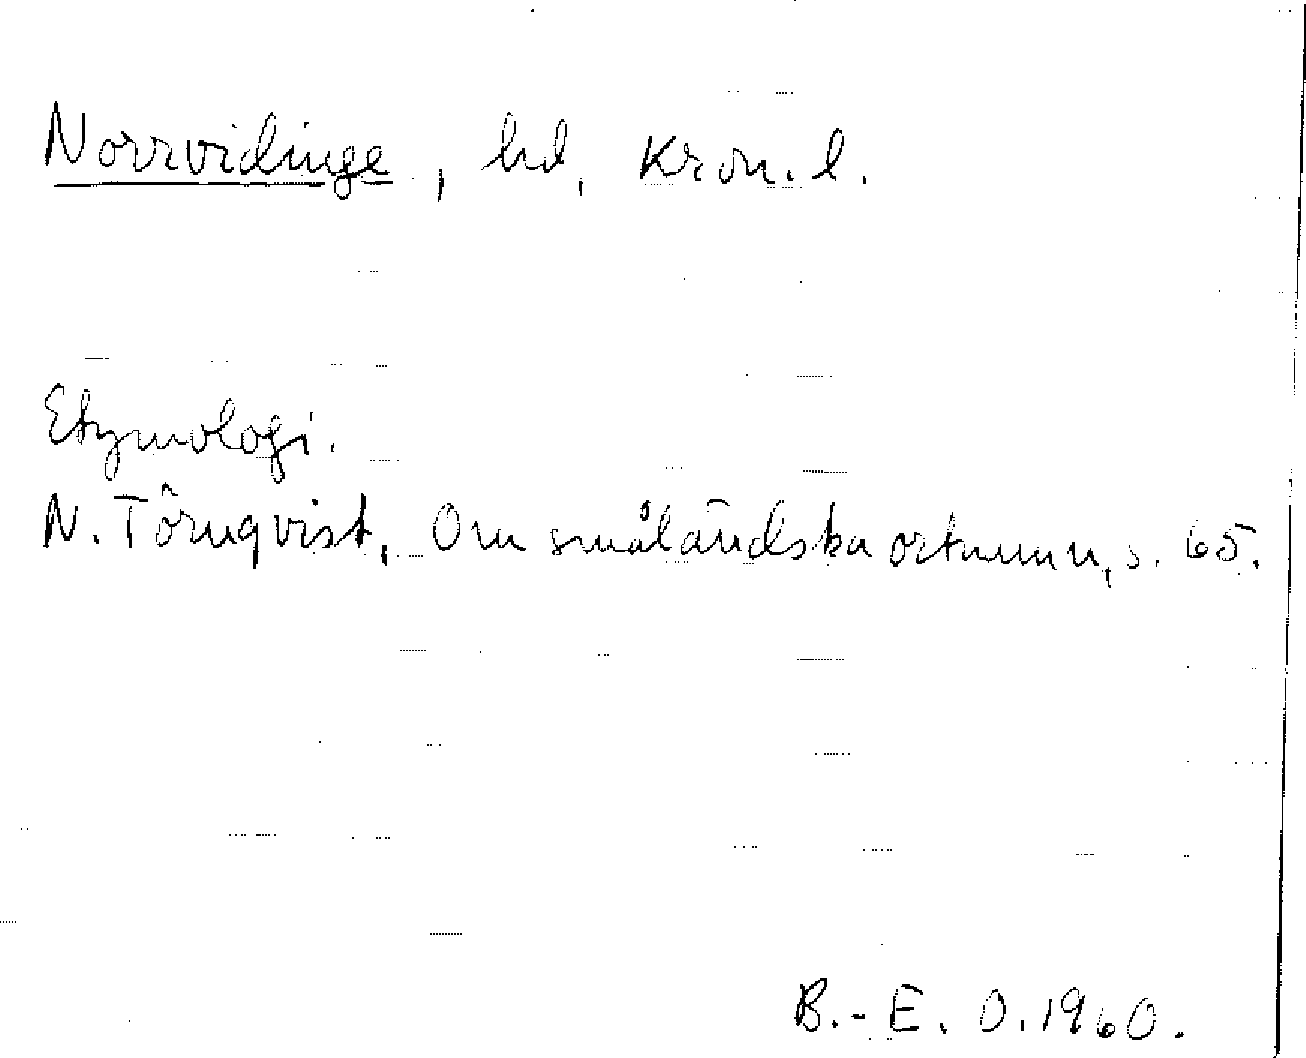 Norrvidinge, hd, Kron. l.
Etymologi.
N. Törnqvist, Om småländska ortnamn, s. 65.
B.-E. O. 1960.